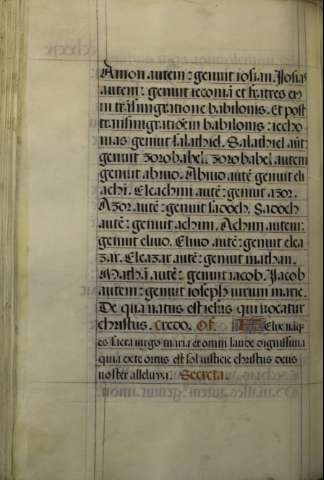 Amon autem: genuit iosian. Iosias
autem: genuit ieconiā et fratres eiꝰ
in trāsmigratione babilonis. Et post
transmigratiōem babilonis: iecho
nias genuit salathiel. Salathiel aūt:
genuit zorobabel. zorobabel autem
genuit abiuo. Abiuo autē genuit eli
achī. Eleachim autē: genuit azor.
Azor autē: genuit sadoch. Sadoch
autē: genuit achim. Achim autem:
genuit eliuo. Eliuo autē: genuit elea
zar. Eleazar autē: genuit mathan.
Mathā autē: genuit iacob. Iacob
autem: genuit ioseph uirum marie.
De qua natus est iesus qui uocatur
christus. Credo. Of. Felix nāqꝫ
es sacra uirgo maria et omni laude dignissima
quia ex te ortus est sol iusticie christus deus
noster alleluya. Secreta.